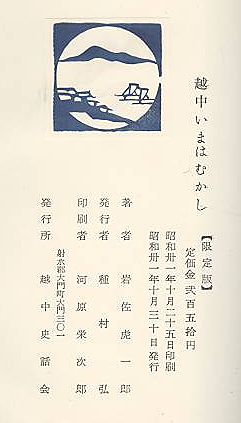 越中いまはむかし
【限定版】
定価金 弐百五拾円
昭和卅一年十月二十五日印刷
昭和卅一年十月三十日発行
著者 岩佐虎一郎
発行者 種村弘
印刷者 河原栄次郎
射水郡大門町大門三〇一
発行所 越中史話会